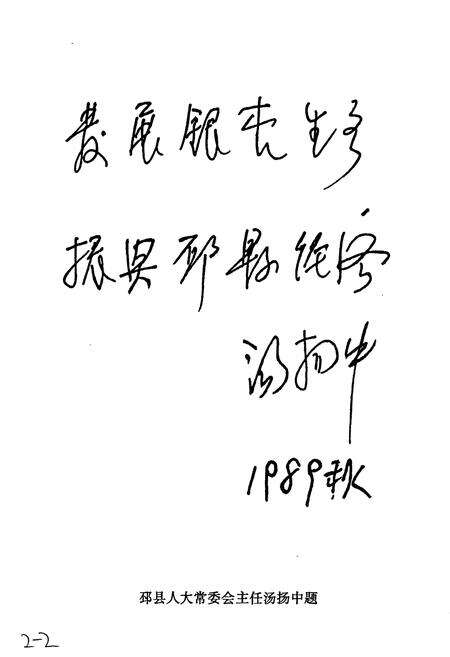 发展银杏生产
振兴邳县经济
汤扬中
1989秋
邳县人大常委会主任汤扬中题
2-2